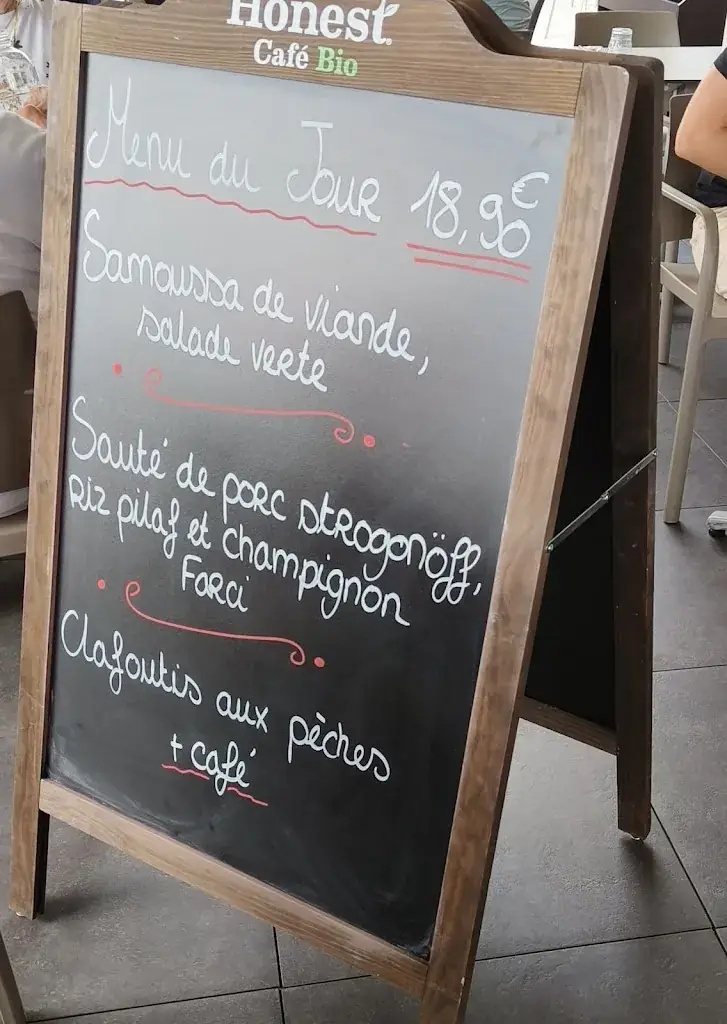 Honest
Café Bio
Menu du Jour 18,90€
Samoussa de viande,
salade verte
Sauté de porc strogonöff,
Riz pilaf et champignon
Farci
Clafoutis aux pèches
+ café